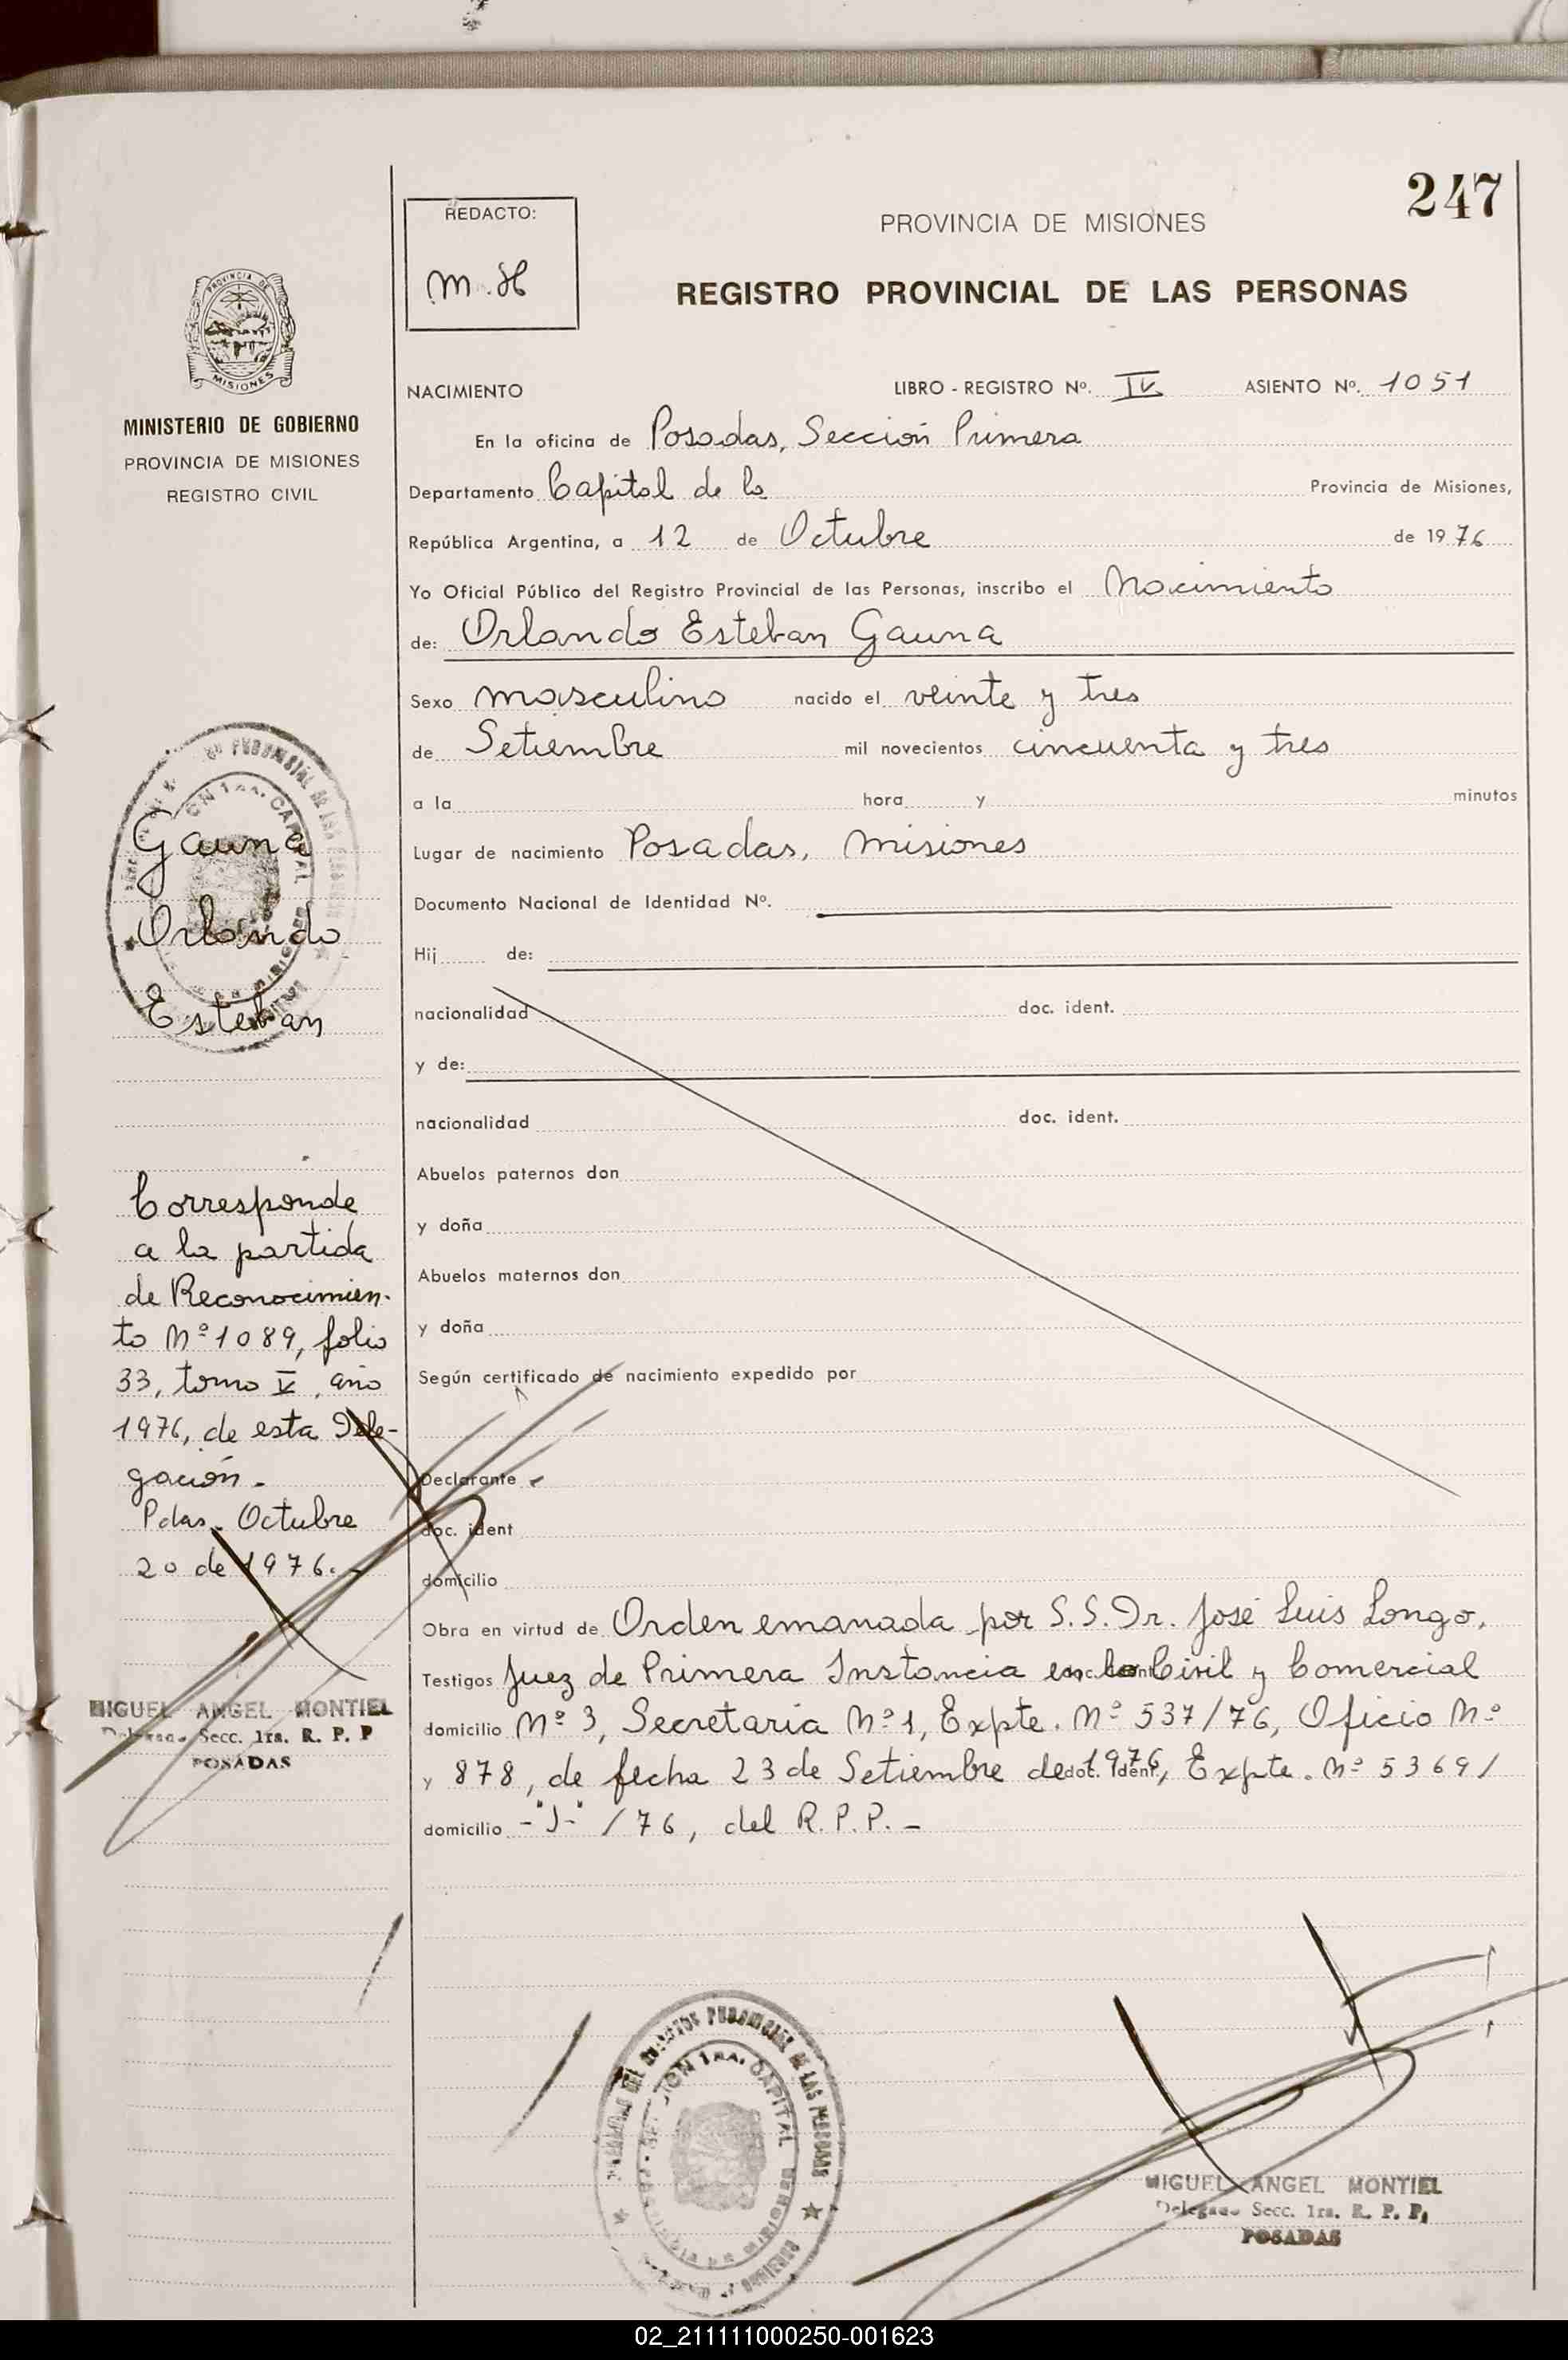 247
REDACTO:
M.H
PROVINCIA DE MISIONES
REGISTRO PROVINCIAL DE LAS PERSONAS
PROVINCIA DE
MISIONES
MINISTERIO DE GOBIERNO
PROVINCIA DE MISIONES
REGISTRO CIVIL
NACIMIENTO LIBRO - REGISTRO Nº. IV ASIENTO Nº. 1051
En la oficina de Posadas, Sección Primera
Departamento Capital de la Provincia de Misiones,
República Argentina, a 12 de Octubre de 1976
Yo Oficial Público del Registro Provincial de las Personas, inscribo el Nacimiento
de: Orlando Esteban Gauna
Sexo masculino nacido el veinte y tres
de Setiembre mil novecientos cincuenta y tres
a la hora y minutos
Lugar de nacimiento Posadas, Misiones
Documento Nacional de Identidad Nº.
Hij de:
nacionalidad doc. ident.
y de:
nacionalidad doc. ident.
Abuelos paternos don
y doña
Abuelos maternos don
y doña
Según certificado de nacimiento expedido por
Declarante
doc. ident
domicilio
Obra en virtud de Orden emanada por S.S. Dr. José Luis Longo,
Testigos Juez de Primera Instancia en lo Civil y Comercial
domicilio Nº 3, Secretaria Nº 1, Expte. Nº 537/76, Oficio Nº
y 878, de fecha 23 de Setiembre de 1976, doc. ident. Expte. Nº 5369/
domicilio -"J-" /76, del R.P.P.-
Gauna
Orlando
Esteban
Corresponde
a la partida
de Reconocimien-
to Nº 1089, folio
33, tomo V, año
1976, de esta Dele-
gación.-
Pdas. Octubre
20 de 1976.-
MIGUEL ANGEL MONTIEL
Delegado Secc. 1ra. R. P. P
POSADAS
PROVINCIAL DE LAS PERSONAS
SECCION 1ra. CAPITAL
MIGUEL ANGEL MONTIEL
Delegado Secc. 1ra. R. P. P.
POSADAS
02_211111000250-001623